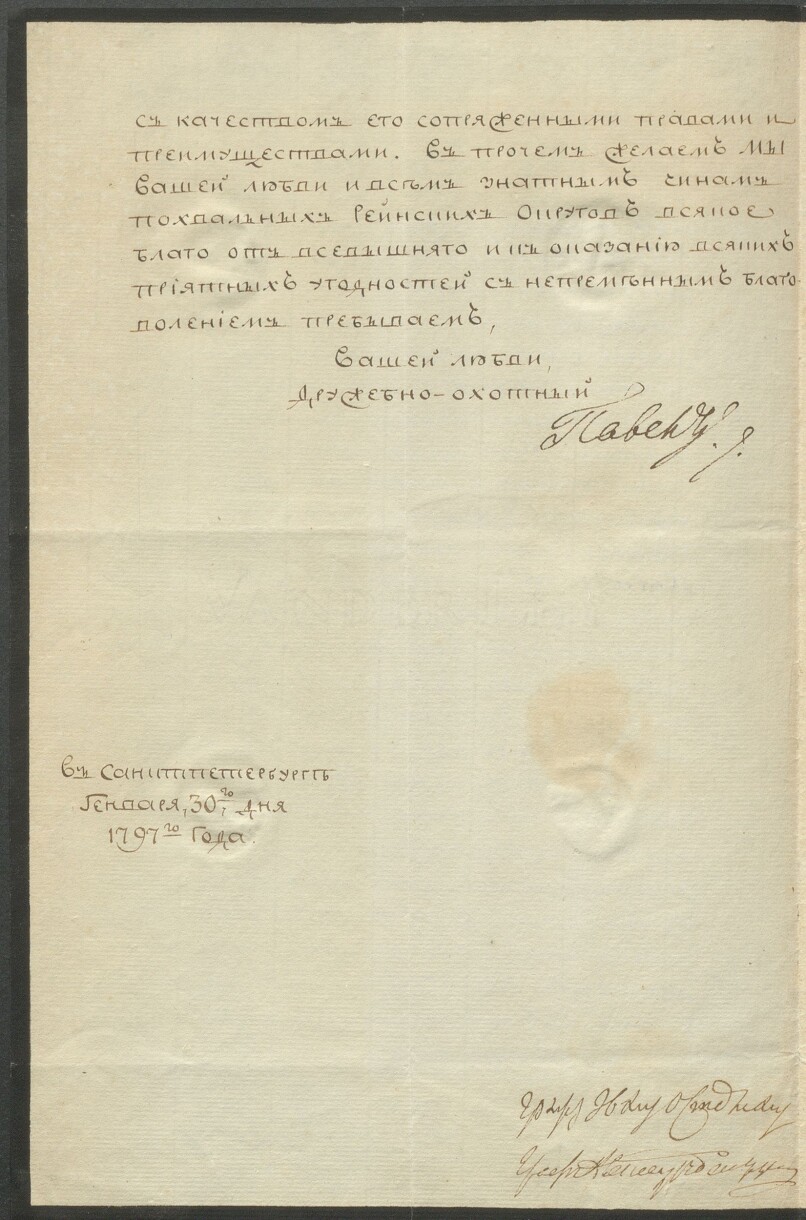 съ качествомъ его сопряженными правами и
преимуществами. Въ прочемъ желаемъ мы
Вашей любви и всѣмъ знатнымъ чинамъ
похвальныхъ Рейнскихъ Округовъ всякое
благо отъ всевышняго и къ оказанію всякихъ
пріятныхъ угодностей съ непремѣннымъ благо-
воленіемъ пребываемъ,
Вашей любви,
дружебно-охотный
Павелъ.
Въ Санктпетербургѣ
Генваря, 30го дня
1797го Года.
Графъ Иванъ Остерманъ